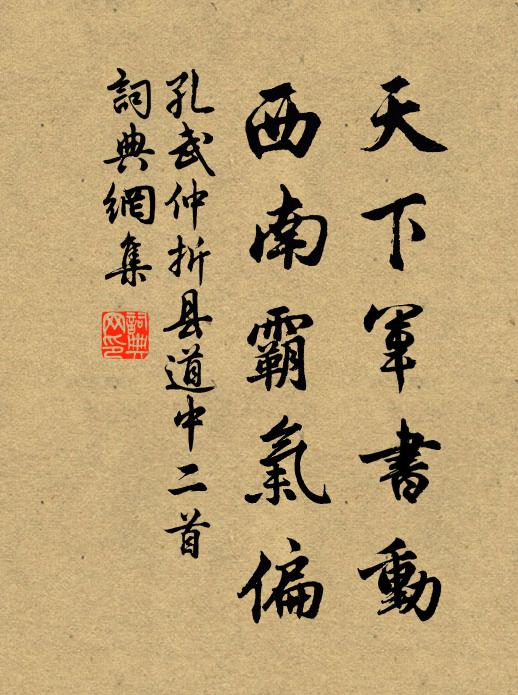 天下軍書動
西南霸氣偏
孔武仲折县道中二首
詞典網集
詞典
网印